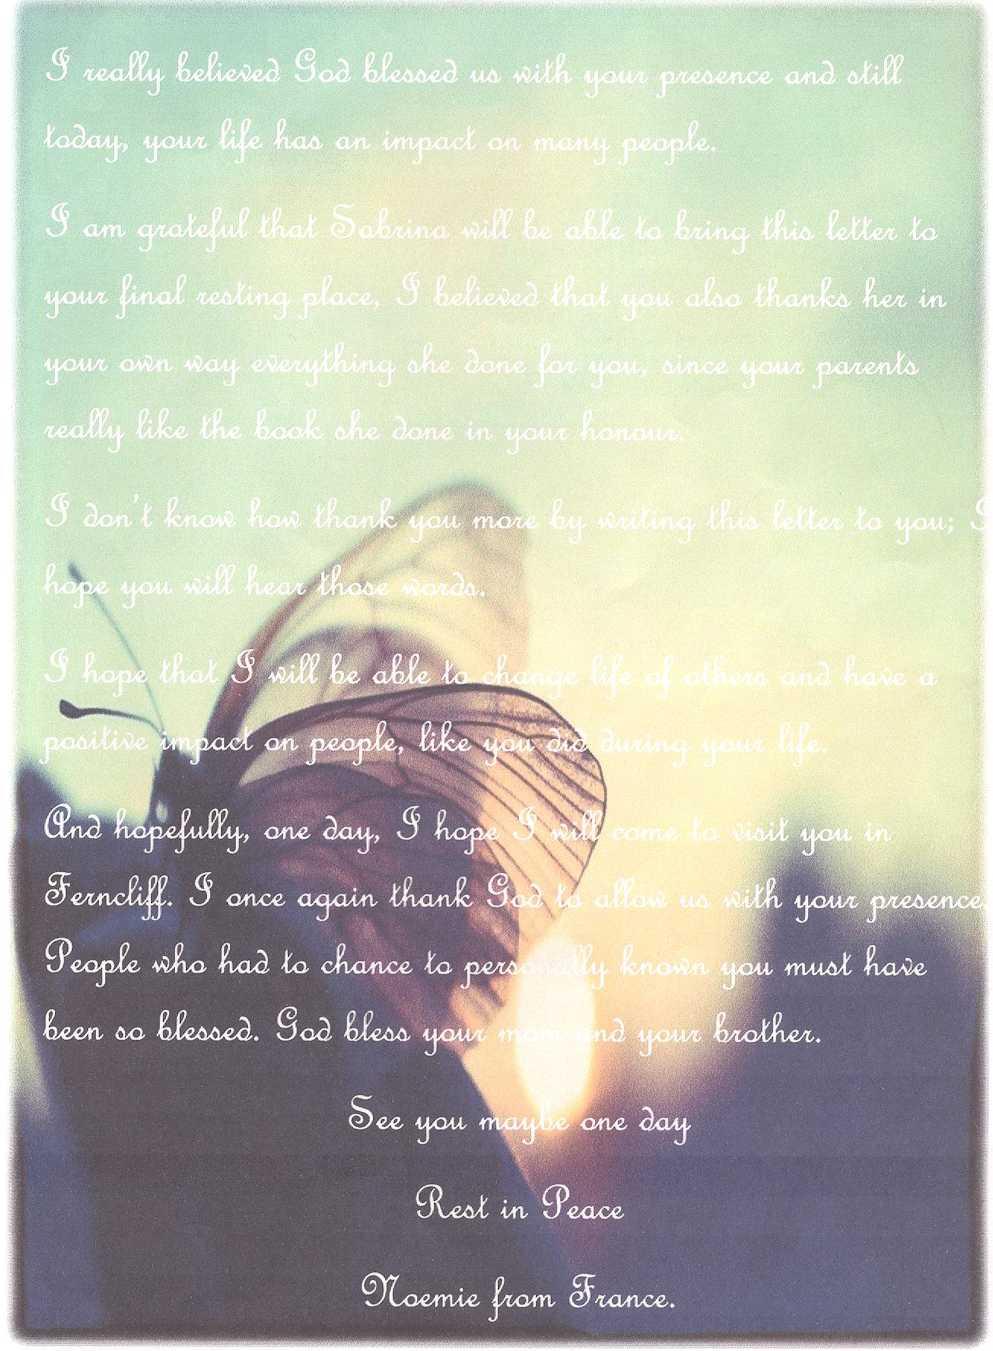 I really believed God blessed us with your presence and still
today, your life has an impact on many people.
I am grateful that Sabrina will be able to bring this letter to
your final resting place, I believed that you also thanks her in
your own way everything she done for you, since your parents
really like the book she done in your honour.
I don't know how thank you more by writing this letter to you; I
hope you will hear those words.
I hope that I will be able to change life of others and have a
positive impact on people, like you did during your life.
And hopefully, one day, I hope I will come to visit you in
Ferncliff. I once again thank God to allow us with your presence.
People who had to chance to personally known you must have
been so blessed. God bless your mom and your brother.
See you maybe one day
Rest in Peace
Noemie from France.